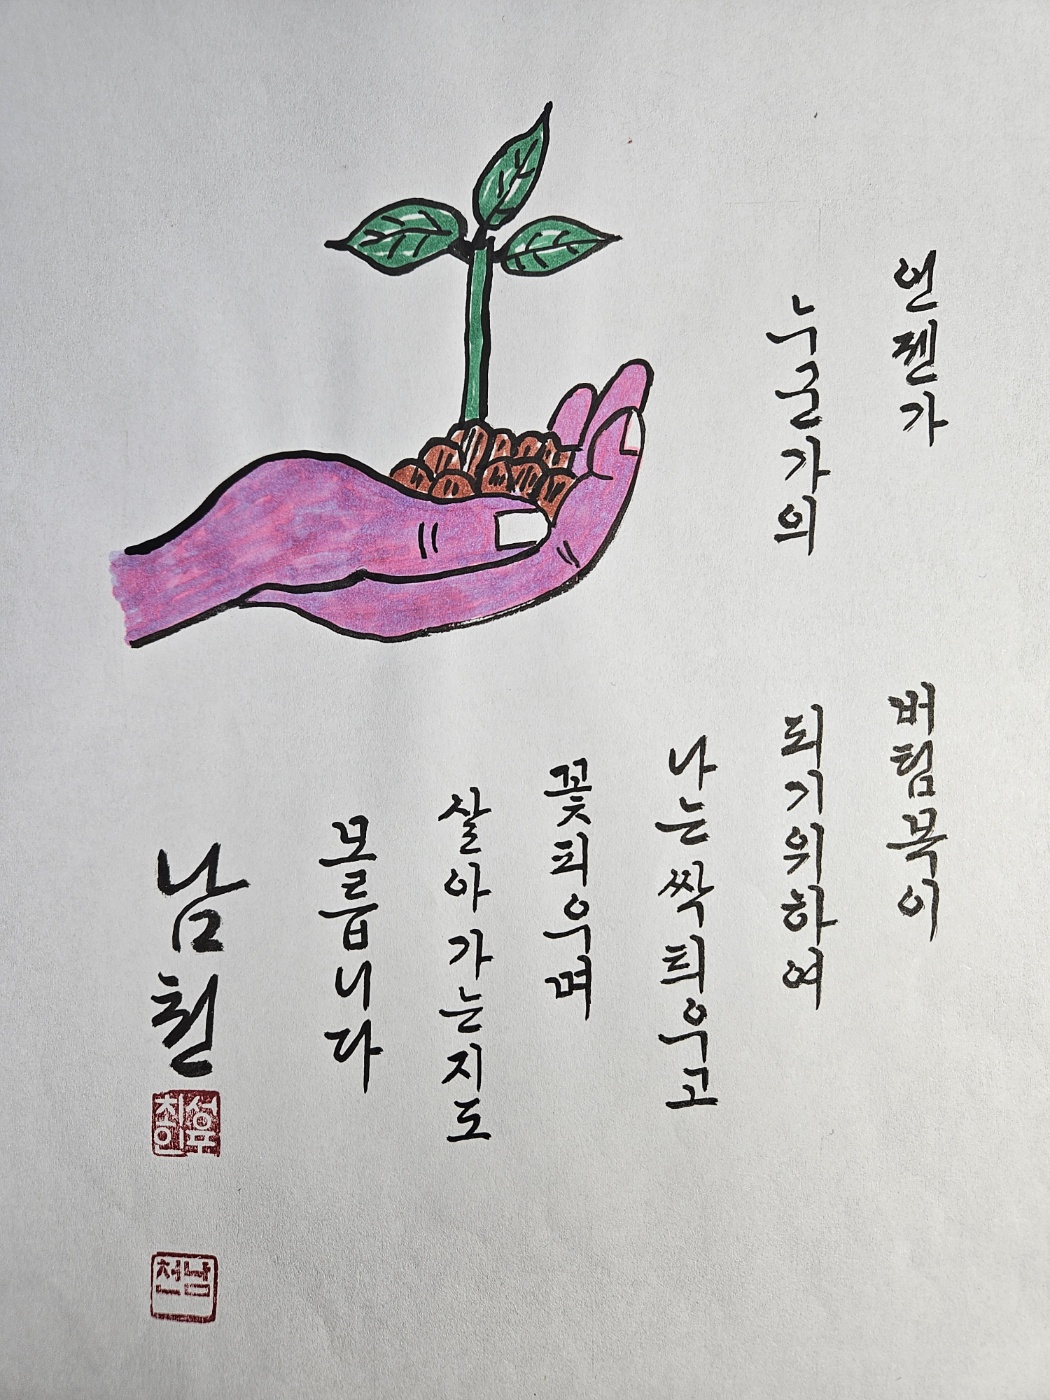 언젠가
누군가의
버팀목이
되기위하여
나는싹틔우고
꽃피우며
살아가는지도
모릅니다
남천
남천